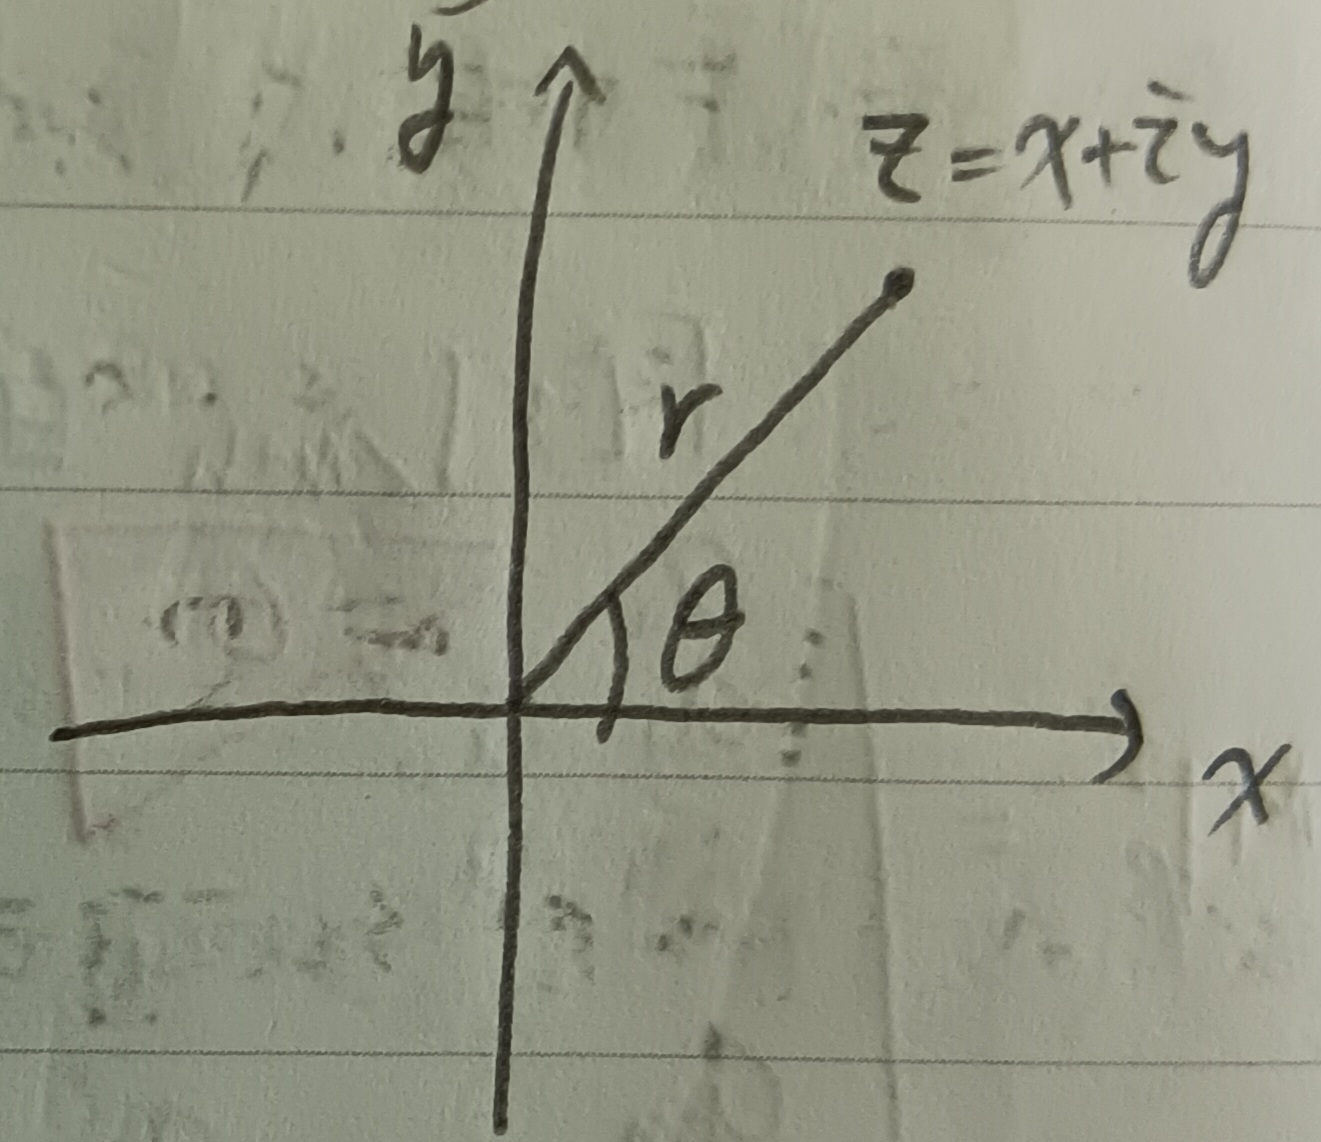 y
z=x+iy
r
θ
x